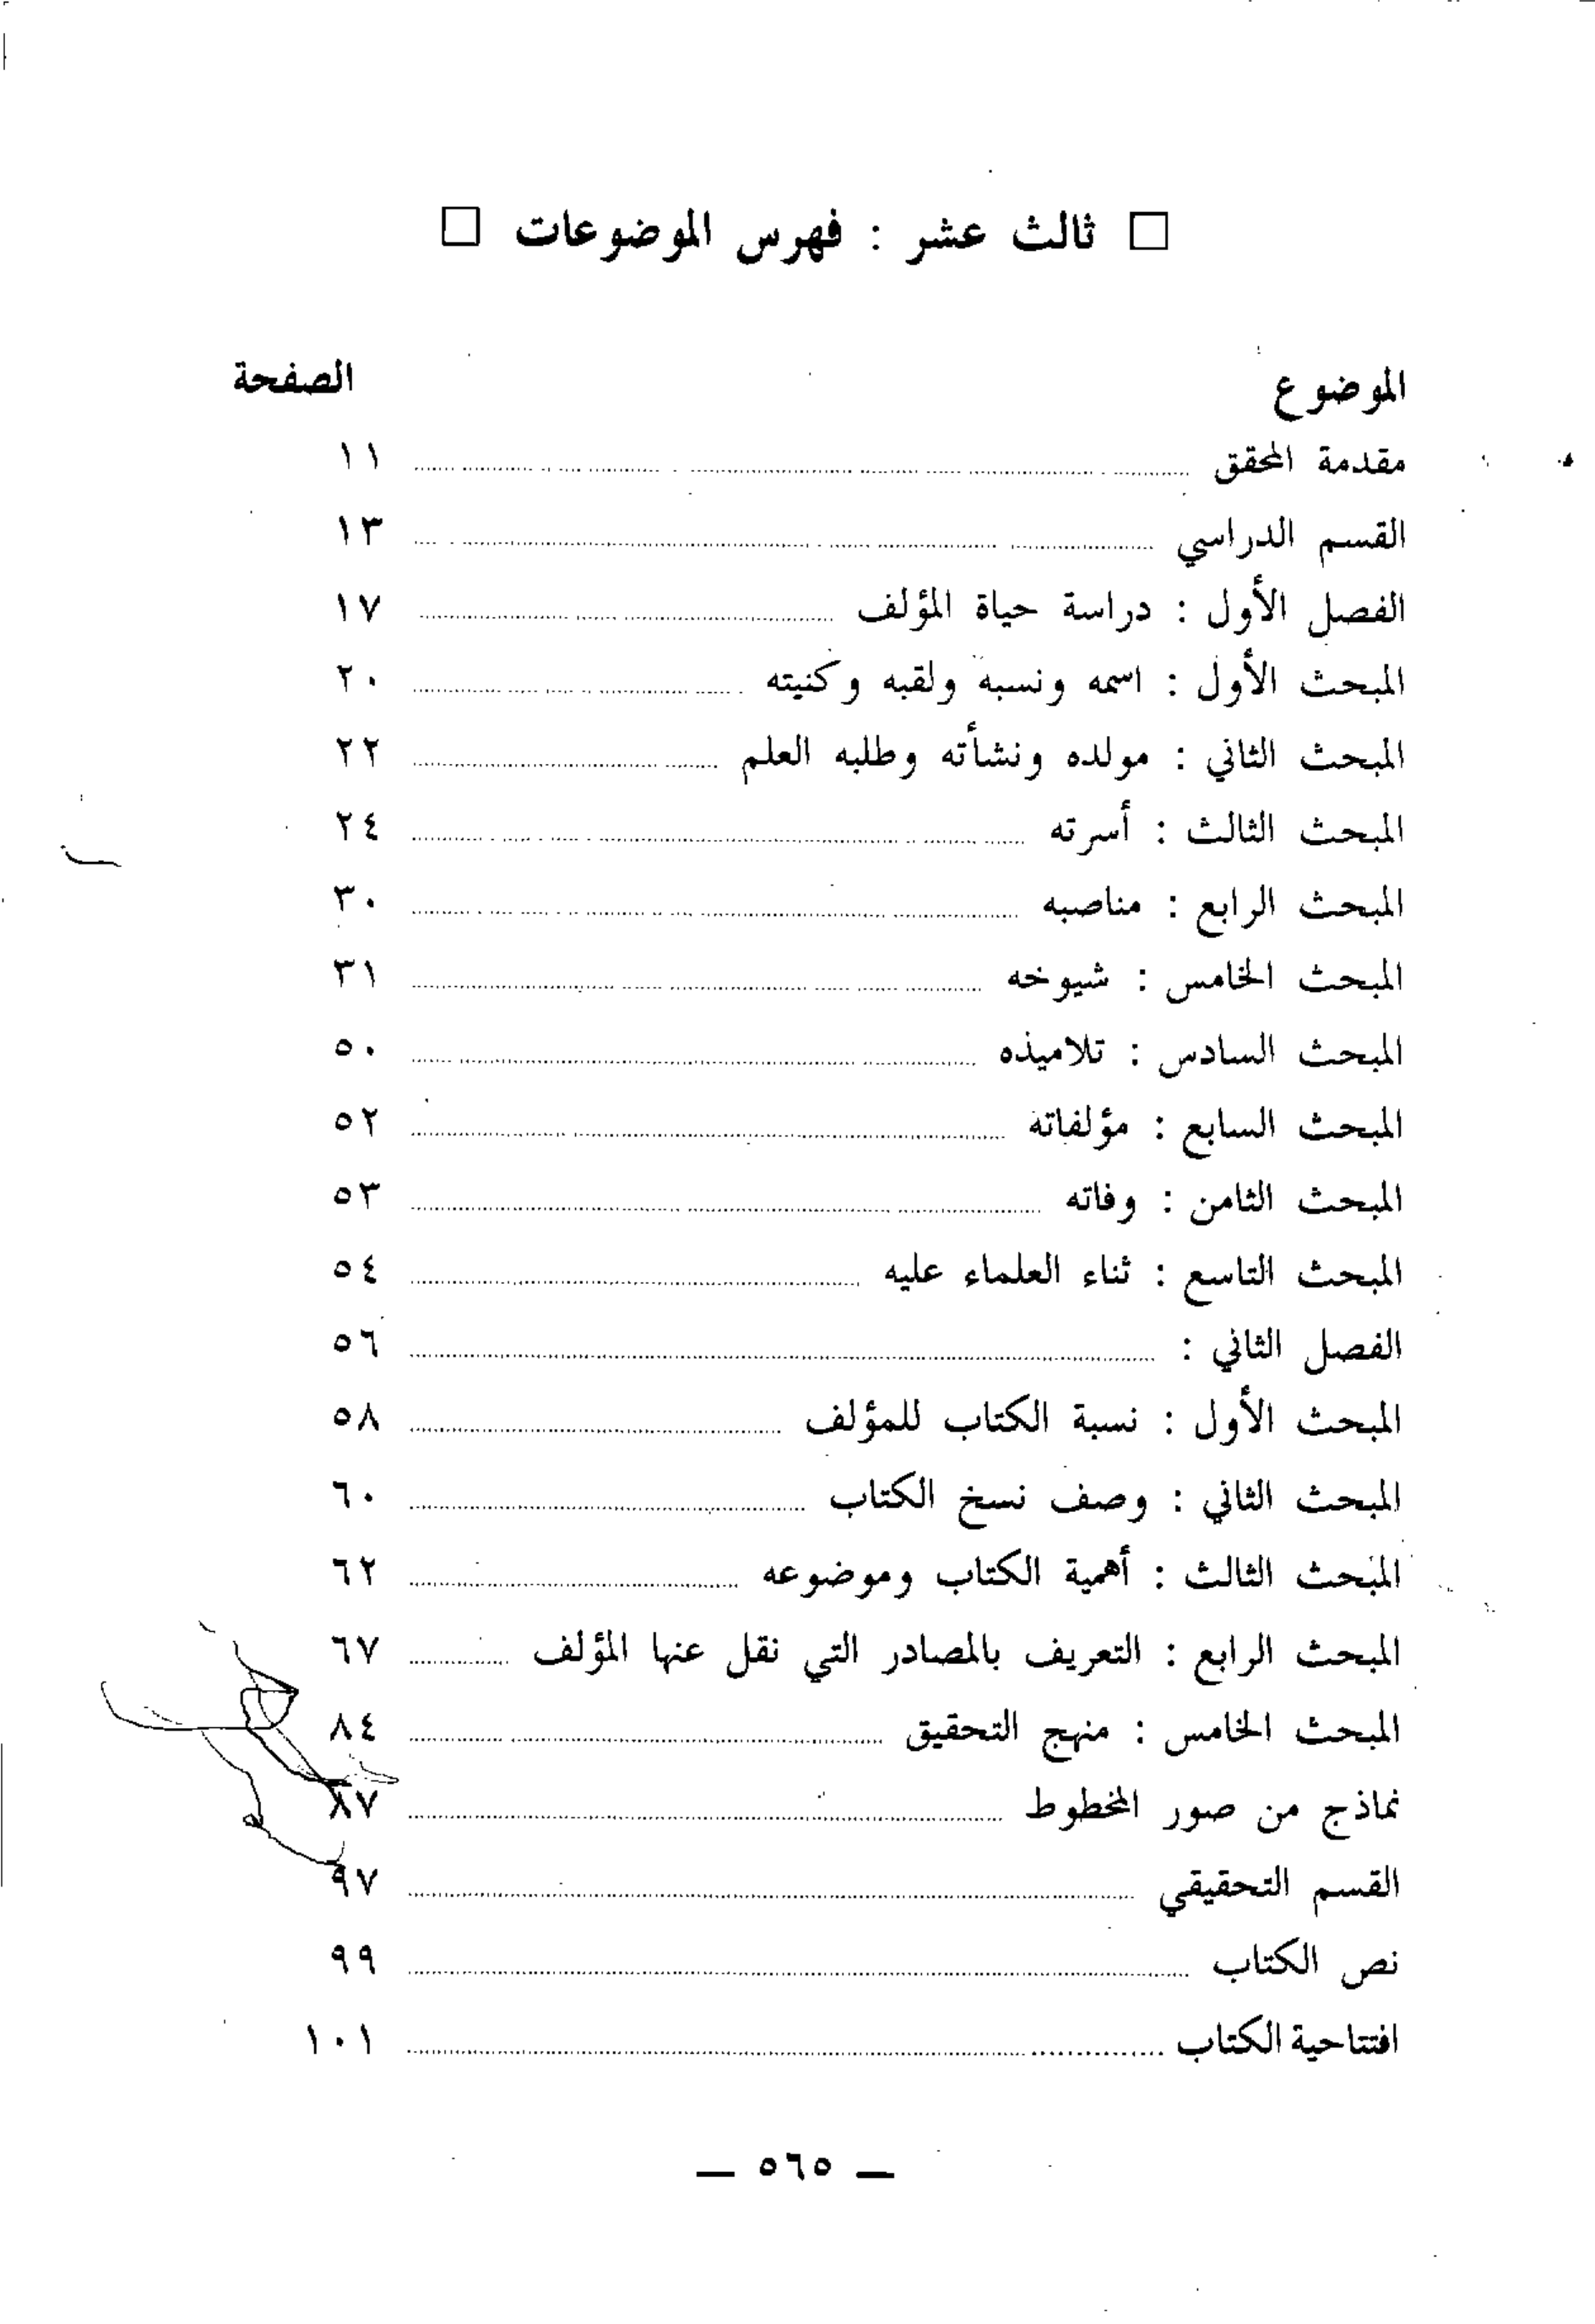 □ ثالث عشر : فهرس الموضوعات □
الموضوع الصفحة
مقدمة المحقق ........ ١١
القسم الدراسي ........ ١٣
الفصل الأول : دراسة حياة المؤلف ........ ١٧
المبحث الأول : اسمه ونسبه ولقبه وكنيته ........ ٢٠
المبحث الثاني : مولده ونشأته وطلبه العلم ........ ٢٢
المبحث الثالث : أسرته ........ ٢٤
المبحث الرابع : مناصبه ........ ٣٠
المبحث الخامس : شيوخه ........ ٣١
المبحث السادس : تلاميذه ........ ٥٠
المبحث السابع : مؤلفاته ........ ٥٢
المبحث الثامن : وفاته ........ ٥٣
المبحث التاسع : ثناء العلماء عليه ........ ٥٤
الفصل الثاني : ........ ٥٦
المبحث الأول : نسبة الكتاب للمؤلف ........ ٥٨
المبحث الثاني : وصف نسخ الكتاب ........ ٦٠
المبحث الثالث : أهمية الكتاب وموضوعه ........ ٦٢
المبحث الرابع : التعريف بالمصادر التي نقل عنها المؤلف ........ ٦٧
المبحث الخامس : منهج التحقيق ........ ٨٤
نماذج من صور المخطوط ........ ٨٧
القسم التحقيقي ........ ٩٧
نص الكتاب ........ ٩٩
افتتاحية الكتاب ........ ١٠١
— ٥٦٥ —